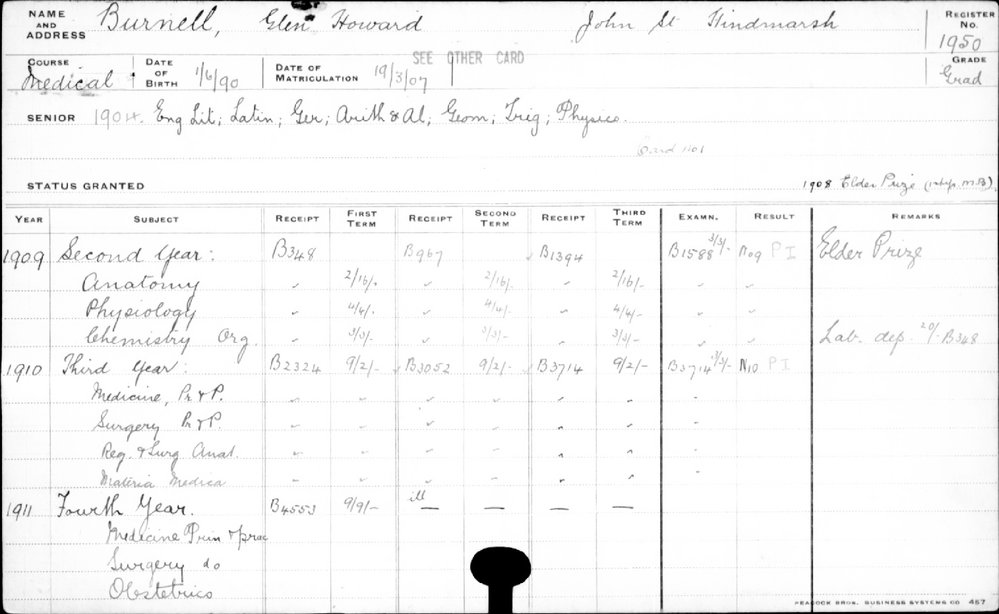 NAME AND ADDRESS Burnell, Glen Howard John St Hindmarsh REGISTER No. 1950
SEE OTHER CARD
COURSE Medical DATE OF BIRTH 1/6/90 DATE OF MATRICULATION 19/3/07 GRADE Grad
SENIOR 1904. Eng Lit; Latin; Ger; Arith & Al; Geom; Trig; Physics.
Card 1101
STATUS GRANTED 1908 Elder Prize (1st yr. M.B.)
YEAR SUBJECT RECEIPT FIRST TERM RECEIPT SECOND TERM RECEIPT THIRD TERM EXAMN. RESULT REMARKS
1909 Second Year: B348 B967 B1394 B1588 3/3/- N09 P I Elder Prize
Anatomy 2/16/- 2/16/- 2/16/-
Physiology 4/4/- 4/4/- 4/4/-
Chemistry Org. 3/3/- 3/3/- 3/3/- Lab. dep. 20/- B348
1910 Third Year: B2324 9/2/- B3052 9/2/- B3714 9/2/- B3714 3/3/- N10 P I
Medicine, Pr & P.
Surgery Pr & P.
Reg. & Surg Anat.
Materia Medica
1911 Fourth Year. B4553 9/9/- ill — — — —
Medicine Prin & prac
Surgery do
Obstetrics
PEACOCK BROS. BUSINESS SYSTEMS CO 457